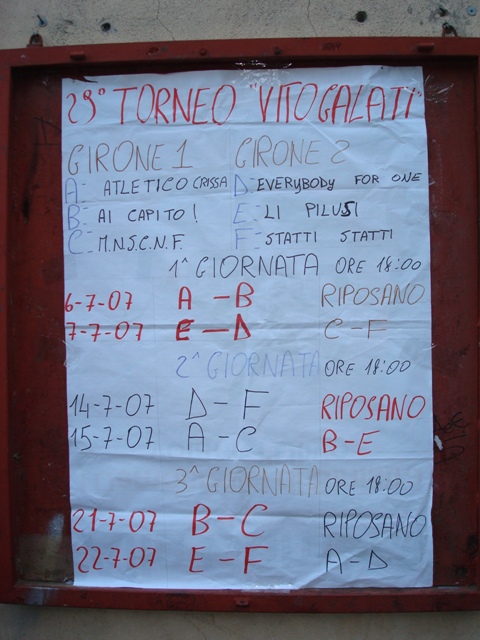 29° TORNEO "VITO GALATI"
GIRONE 1 GIRONE 2
A: ATLETICO CRISSA D: EVERYBODY FOR ONE
B: AI CAPITO! E: LI PILUSI
C: M.N.S.C.N.F. F: STATTI STATTI
1^ GIORNATA ORE 18:00
6-7-07 A - B RIPOSANO
7-7-07 E - D C - F
2^ GIORNATA ORE 18:00
14-7-07 D - F RIPOSANO
15-7-07 A - C B - E
3^ GIORNATA ORE 18:00
21-7-07 B - C RIPOSANO
22-7-07 E - F A - D